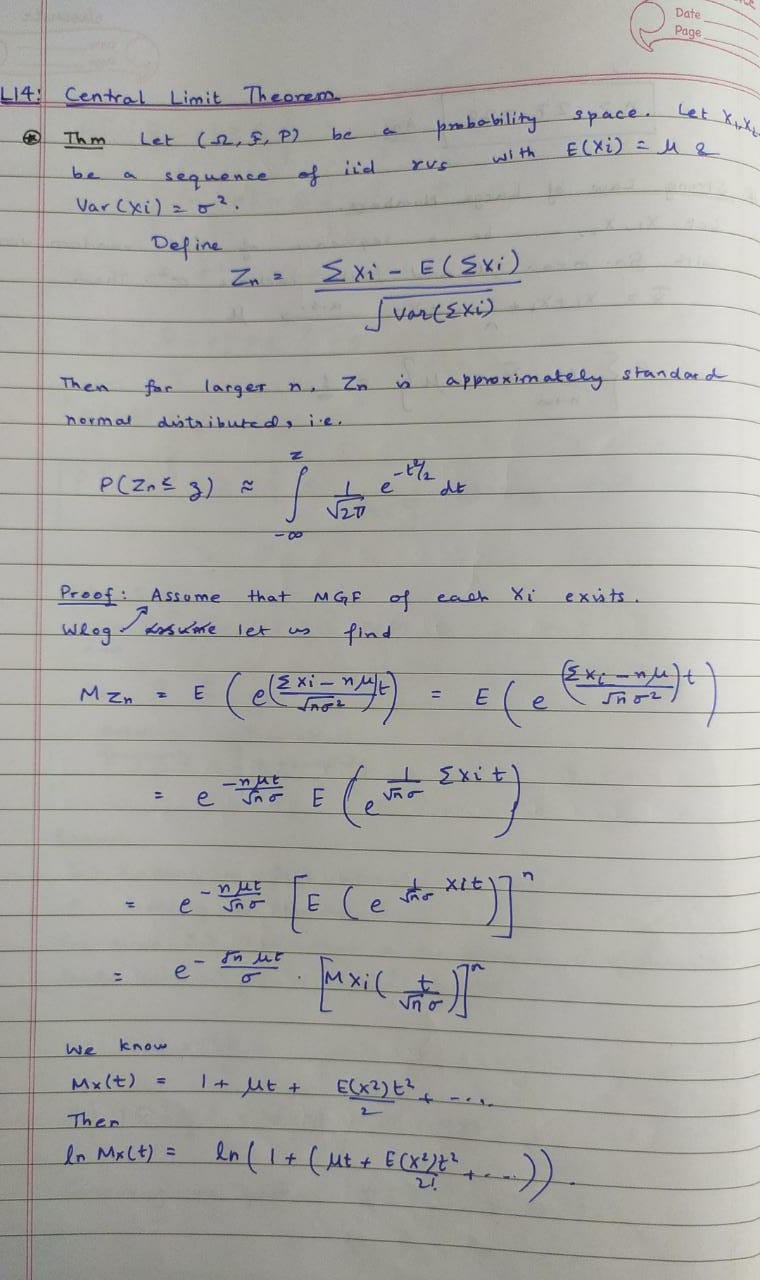 Date
Page
L14: Central Limit Theorem
⊛ Thm Let (Ω, F, P) be a probability space. Let X1, X2
be a sequence of iid rvs with E(Xi) = μ &
Var(Xi) = σ².
Define
Zn = (Σ Xi - E(ΣXi)) / √Var(ΣXi)
Then for larger n, Zn is approximately standard
normal distributed, i.e.
P(Zn ≤ z) ≈ ∫_{-∞}^{z} 1/√2π e^{-t²/2} dt
Proof: Assume that MGF of each Xi exists.
Wlog let us find
M Zn = E ( e^{((Σ Xi - nμ)/√nσ²) t} ) = E ( e^{((Σ Xi - nμ)/√n σ²) t} )
= e^{-nμt/√nσ} E ( e^{1/√nσ ΣXi t} )
= e^{-nμt/√nσ} [ E ( e^{1/√nσ Xi t} ) ]^n
= e^{-√n μt/σ} . [ M Xi ( t/√n σ ) ]^n
We know
Mx(t) = 1 + μt + E(X²)t²/2 + ....
Then
ln Mx(t) = ln ( 1 + ( μt + E(X²)t²/2! + .... ) ) .